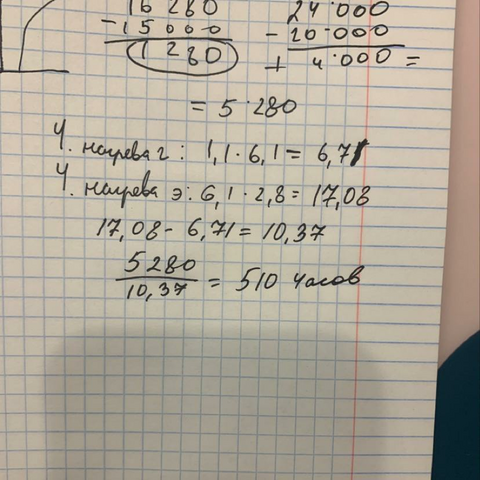 16 280
24·000
- 15 000
- 20·000
1 280
+ 4·000 =
= 5·280
Ч. нагрева г: 1,1·6,1 = 6,71
Ч. нагрева э: 6,1·2,8 = 17,08
17,08 - 6,71 = 10,37
5280
10,37
= 510 часов